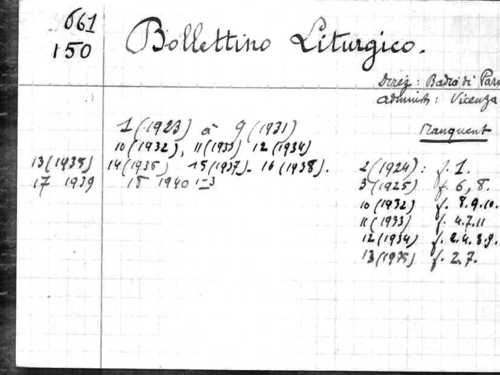 661
150
Bollettino Liturgico.
Direz: Badia di
administ: Vicenza
1 (1923) à 9 (1931)
Manquent
10 (1932), 11 (1933) 12 (1934)
13 (1935) 14 (1936) 15 (1937). 16 (1938).
17 1939 18 1940 1-3
2 (1924): f. 1.
3 (1925) f. 6, 8.
10 (1932) f. 8.9.10.
11 (1933) f. 4.7.11
12 (1934) f. 2.4.8.9.
13 (1935) f. 2.7.